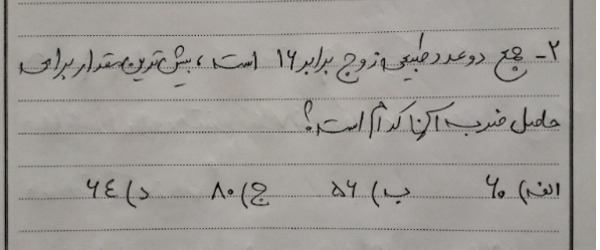 ۲- جمع دو عدد طبیعی زوج برابر ۱۶ است، بیش‌ترین مقدار برای
حاصل ضرب آنها کدام است؟
الف) ۶۰ ب) ۵۶ ج) ۸۰ د) ۶۴